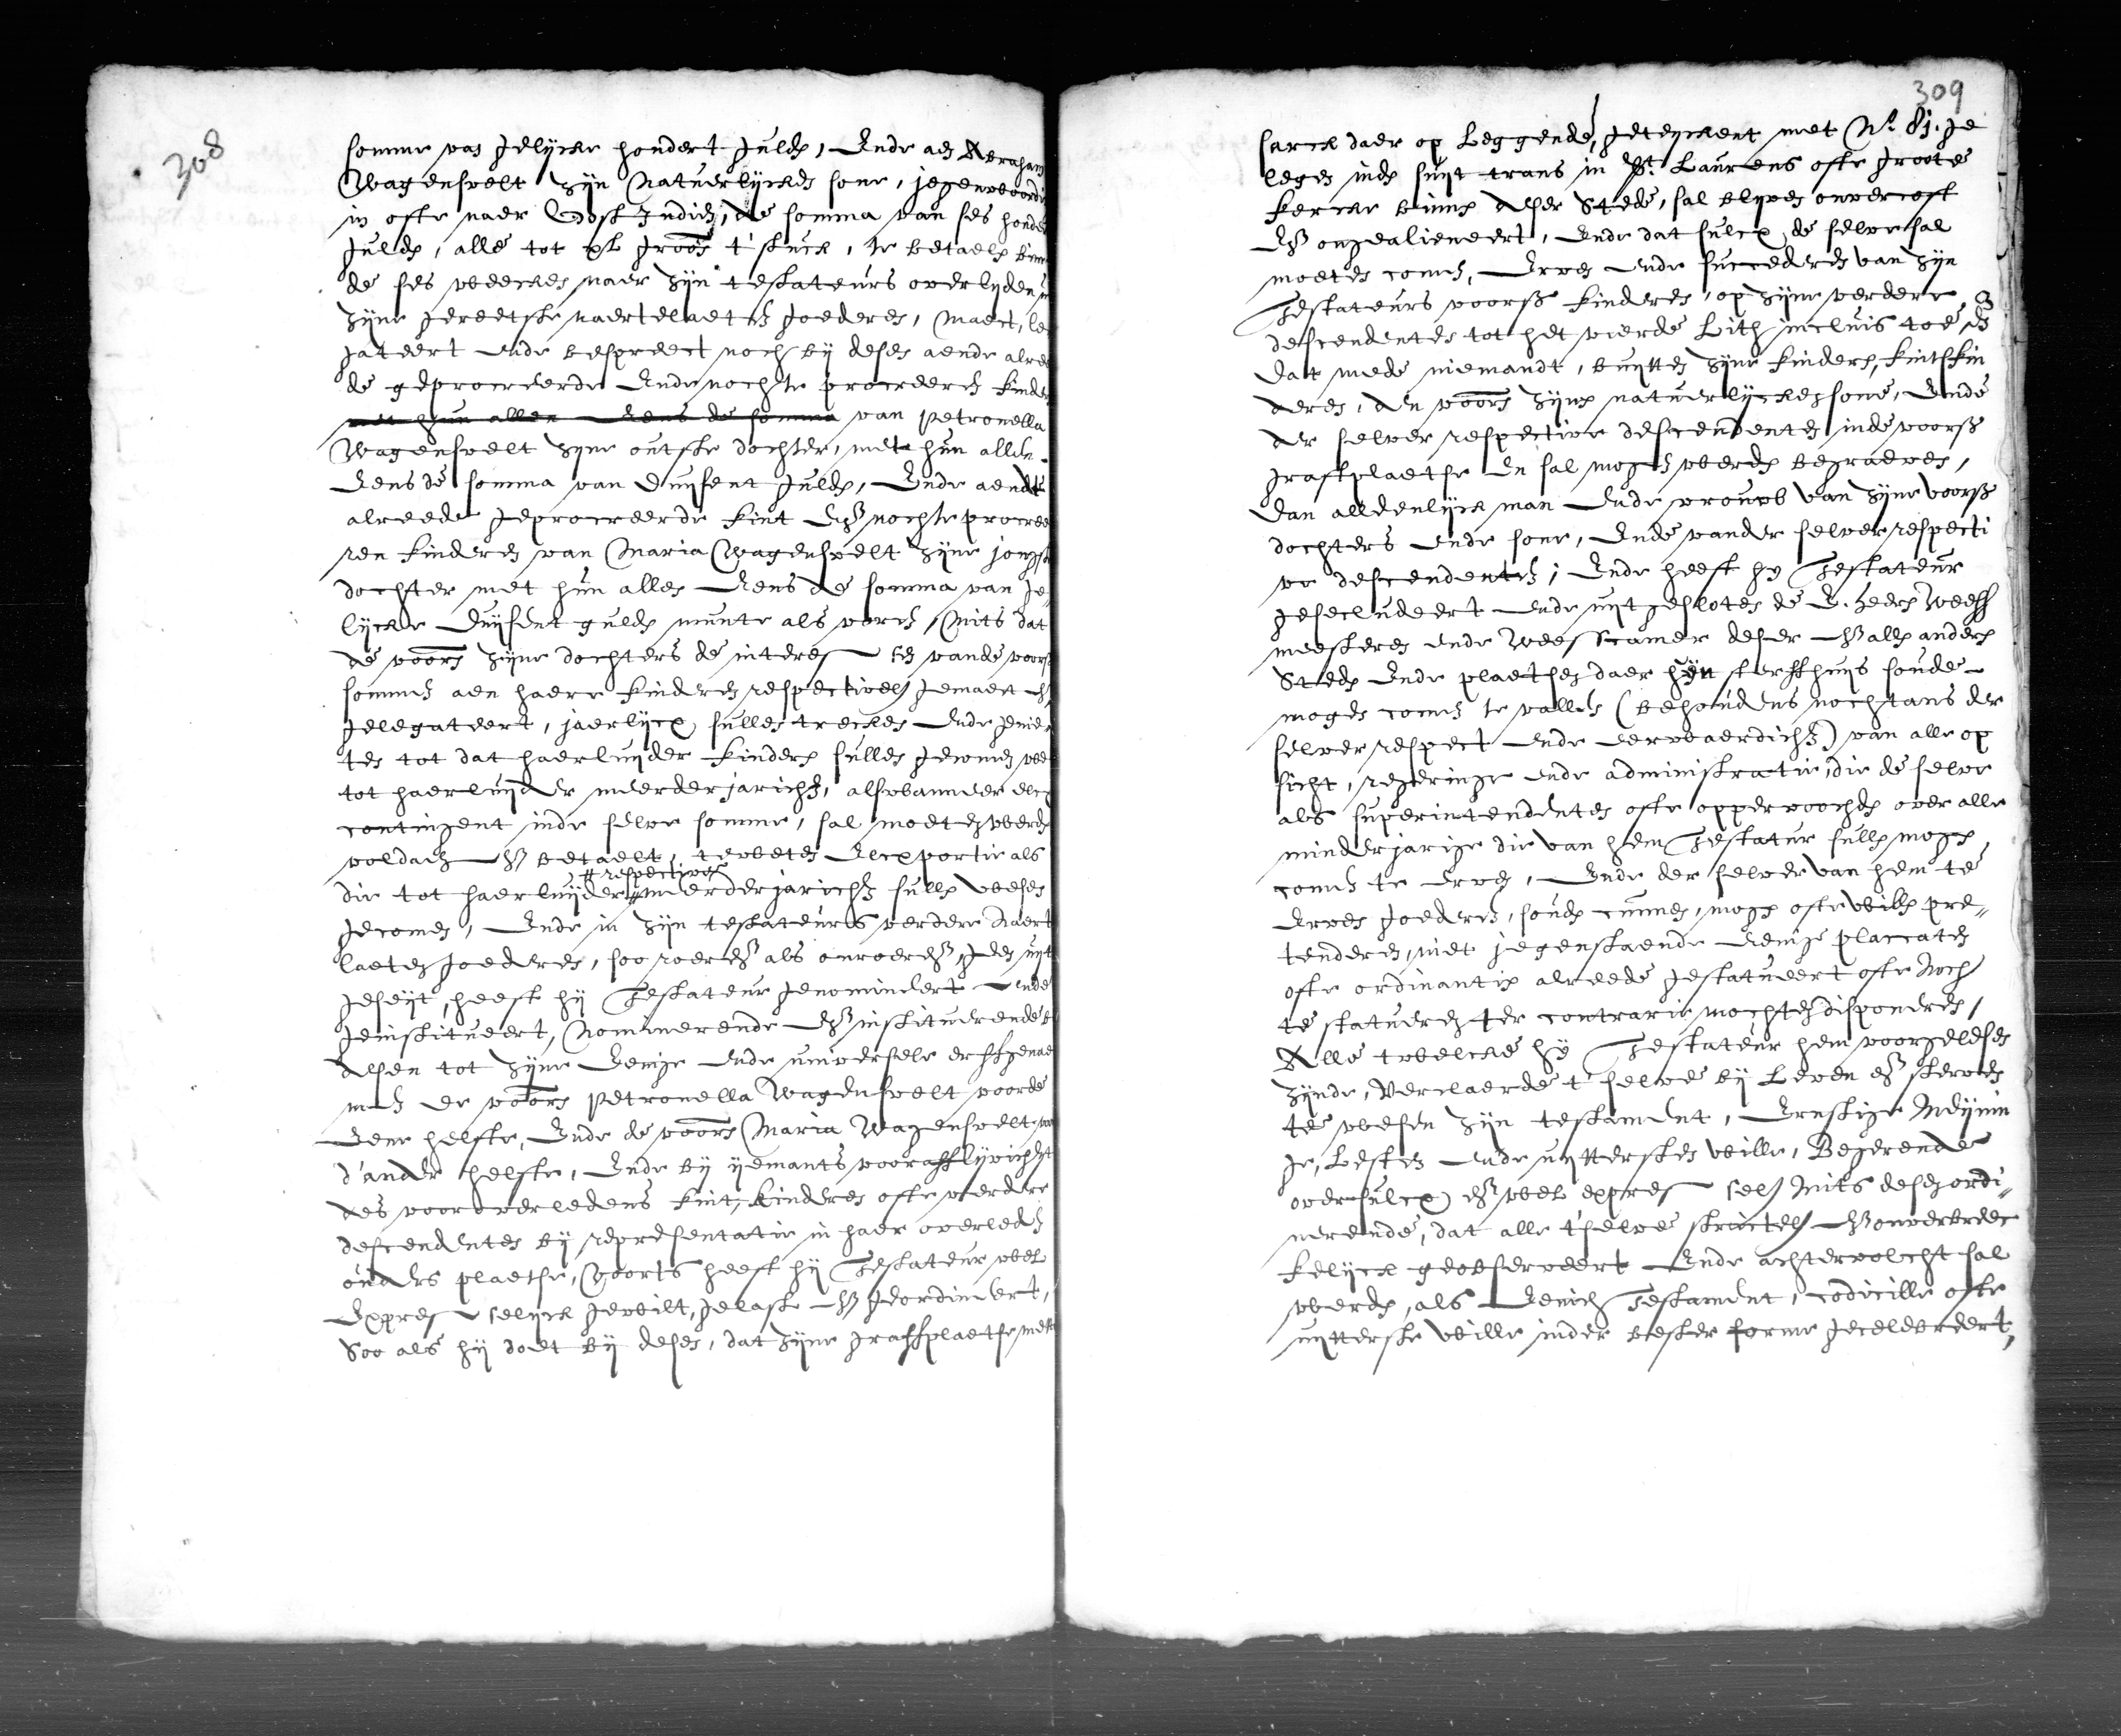 308
somme van gelycke hondert guldn, Ende aen Abraham
Wagensvelt zijn Natuerlycken sone, jegenwoordi
in ofte naer Oost Indien, de somma van ses honde
guldn, alle tot xl grooten t' stuck, te betaeln binne
de ses weecken naer zijn testateurs overlyden
zyne gereetste naertelaeten goederen, Maect, le
gateert ende bespreect noch by desen aende alree
de geprocreerde Ende noch te procreeren kinder
met hun allen Eens de somma van Petronella
Wagensvelt zyne outste dochter, met hun allen
Eens de somma van Duysent guldn, Ende aende
alreede geprocreerde kint ende noch te procree
ren kinderen van Maria Wagensvelt zyne jongste
dochter met hun allen Eens de somma van ge„
lycke Duysent guldn munte als voren, Mits dat
de voors zyne dochters de interessen vande voors
sommen aen haere kinderen respectivelyck gemaect en
gelegateert, jaerlycx sullen trecken ende genie
ten tot dat haerluyder kindern sullen gecomen we
tot haerluyder meerderjaricht, alswanneer elcx
contingent inde selve somme, sal moeten werdn
voldaen en betaelt, te weten Elcx portie als
# respective
die tot haerluyder # meerderjaricht sulln wesen
gecomen, Ende in zijn testateurs verdere Naert
laeten goederen, soo roerende als onroerende, geen uyt
geseyt, heeft hij Testateur genomineert ende
geinstitueert, Nominerende ende instituerende b
desen tot zyne Eenige ende universele erffgenae
men de voors Petronella Wagensvelt voorde
Eene helfte, Ende de voors Maria Wagensvelt voor
d'ander helfte, Ende by yemants voorafflyvicheyt
des vooroverledens kint, kinderen ofte verdere
descendenten by representatie in haer overleden
ouders plaetse, Voorts heeft hij Testateur wel
Expresselyck gewilt, gelast ende geordineert,
Soo als hij doet bij desen, dat zyne graffplaetse mette
309
sarck daer op Leggende, geteyckent met No. 81. ge
legen inden suyt trans in St. Laurens ofte groote
kercke binnen deser Stede, sal blyven onvercoft
ende ongealieneert, Ende dat sulcx de selve sal
moeten comen, Erven ende succederen van zijn
Testateurs voorss kinderen, op zyne verdere
descendenten tot het vierde Lith incluis toe, En
dat mede niemandt, buyten zyne kindern, kintskin
deren, den voors zynen natuerlycken sone, Ende
der selver respective descendenten inde voorss
graffplaetse en sal mogen werdn begraven,
dan alleenlyck man Ende vrouw van zyne voorss
dochters ende sone, Ende vander selver respecti
ve descendenten; Ende heeft hy Testateur
gesecludeert ende uytgesloten de E. heern Wees
meesteren ende Weescamer deser ende alln andern
Stedn Ende plaetsen daer zijn sterffhuys soude
mogen comen te vallen (behoudens nochtans der
selver respect ende eerwaerdicht) van alle op
sicht, regeringe ende administratie, die de selve
als superintendenten ofte oppervoochden over alle
minderjarige die van hem Testateur sulln mogen
comen te erven, Ende der selver van hem te
Erven goederen, soudn cunnen, mogen ofte willn pre„
tenderen, niet jegenstaende eenige placcaten
ofte ordinantien alreede gestatueert ofte Noch
te statueren ter contrarie mochten disponeren,
Alle twelcke hij Testateur hem voorgelesen
zynde, Verclaerde t' selve by Leven en sterven
te wesen zijn testament, Ernstige Meynin
ge, Lesten ende uytersten wille, Begerende
oversulcx en wel expresselyck Mits desen ordi„
nerende, dat alle t'selve strictelyck ende onverbrec
kelyck geobserveert Ende achtervolcht sal
werden, als Eenich Testament, codicille ofte
uyterste wille inder bester forme gecelebreert,